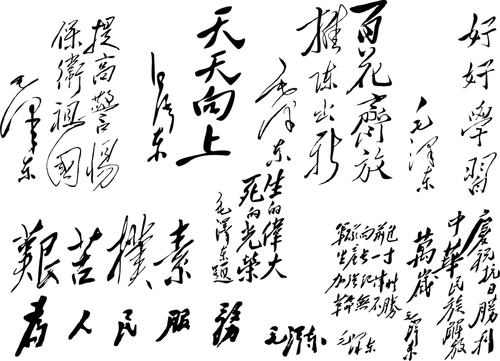 好好學習
毛泽东
百花齊放
推陈出新
毛泽东
天天向上
毛泽东
提高警惕
保衛祖國
毛泽东
生的偉大
死的光榮
毛泽东題
慶祝抗日勝利
中華民族解放
萬歲
毛泽东
毛泽东
艱苦樸素
為人民服務
毛泽东